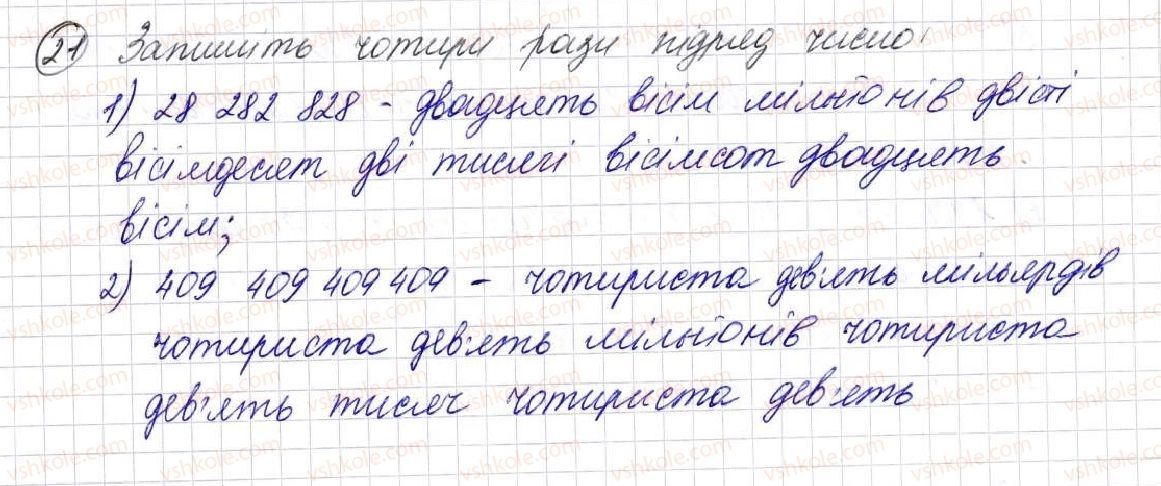 21 Запишіть чотири рази підряд число:
1) 28 282 828 - двадцять вісім мільйонів двісті
вісімдесят дві тисячі вісімсот двадцять
вісім;
2) 409 409 409 409 - чотириста дев'ять мільярдів
чотириста дев'ять мільйонів чотириста
дев'ять тисяч чотириста дев'ять